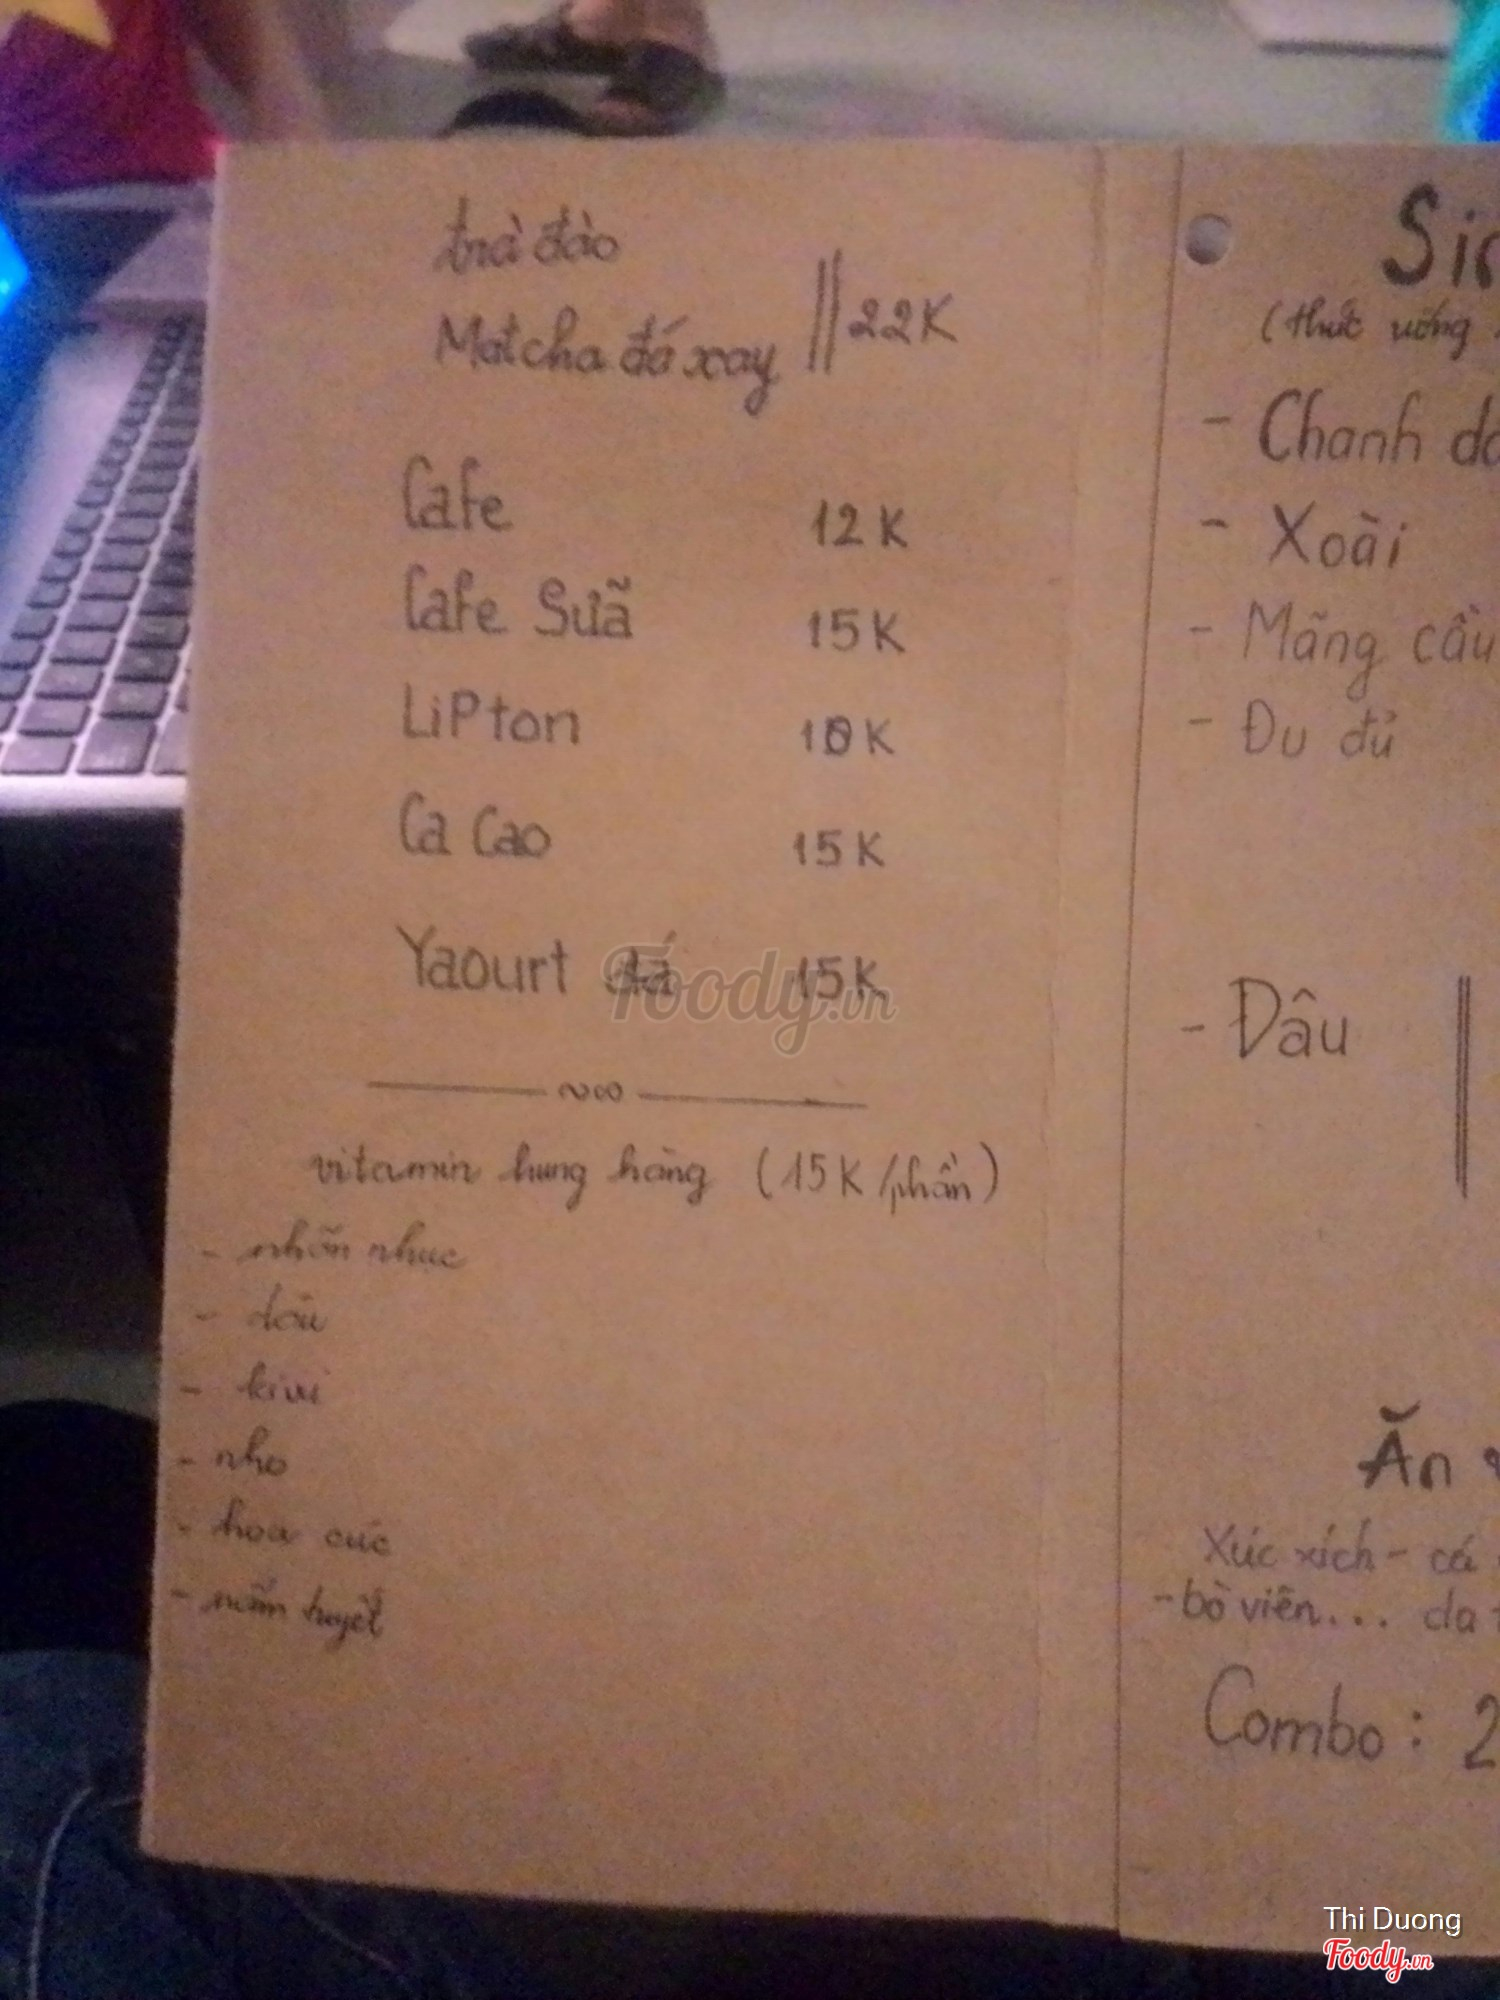 trà đào
Matcha đá xay || 22K
Cafe 12K
Cafe Sưã 15K
LiPton 10K
Ca Cao 15K
Yaourt đá 15K
vitamin hung hăng (15K/phần)
- nhãn nhục
- dâu
- kiwi
- nho
- hoa cúc
- nấm tuyết
(thức uống
- Chanh
- Xoài
- Mãng cầu
- Đu đủ
- Đâu
Ăn
Xúc xích - cá
- bò viên... da
Combo: 2
Foody.vn
Thi Duong
Foody.vn